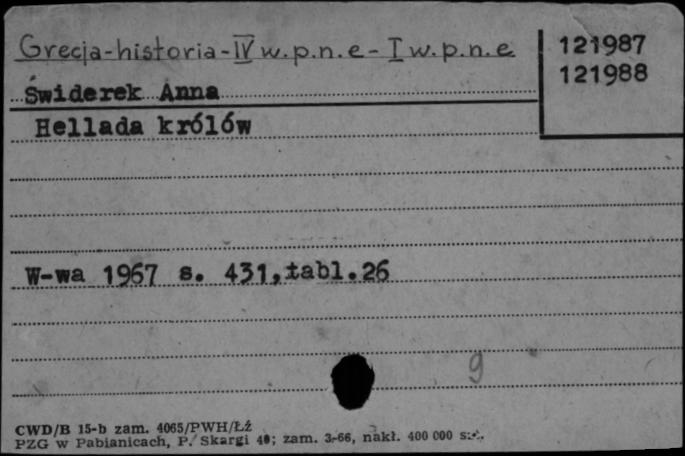 Grecja-historia-IV w.p.n.e-I w.p.n.e
121987
121988
Świderek Anna
Hellada królów
W-wa 1967 s. 431,tabl.26
9
CWD/B 15-b zam. 4065/PWH/ŁŹ
PZG w Pabianicach, P. Skargi 40; zam. 3-66, nakł. 400 000 szt.